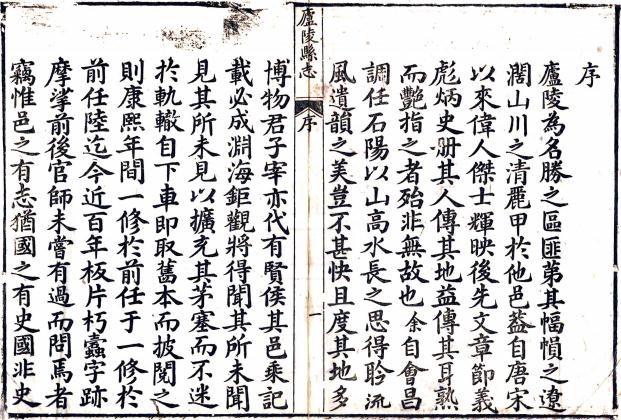 序
廬陵為名勝之區匪第其幅幀之遼
濶山川之清麗甲於他邑葢自唐宋
以來偉人傑士輝映後先文章節義
彪炳史册其人傳其地益傳其耳熟
而艷指之者殆非無故也余自會昌
調任石陽以山高水長之思得聆流
風遺韻之美豈不甚快且度其地多
廬陵縣志
序
一
博物君子宰亦代有賢侯其邑乘記
載必成淵海鉅觀將得聞其所未聞
見其所未見以擴充其茅塞而不迷
於軌轍自下車即取舊本而披閱之
則康熙年間一修於前任于一修於
前任陸迄今近百年板片朽蠹字跡
摩挲前後官師未嘗有過而問焉者
竊惟邑之有志猶國之有史國非史